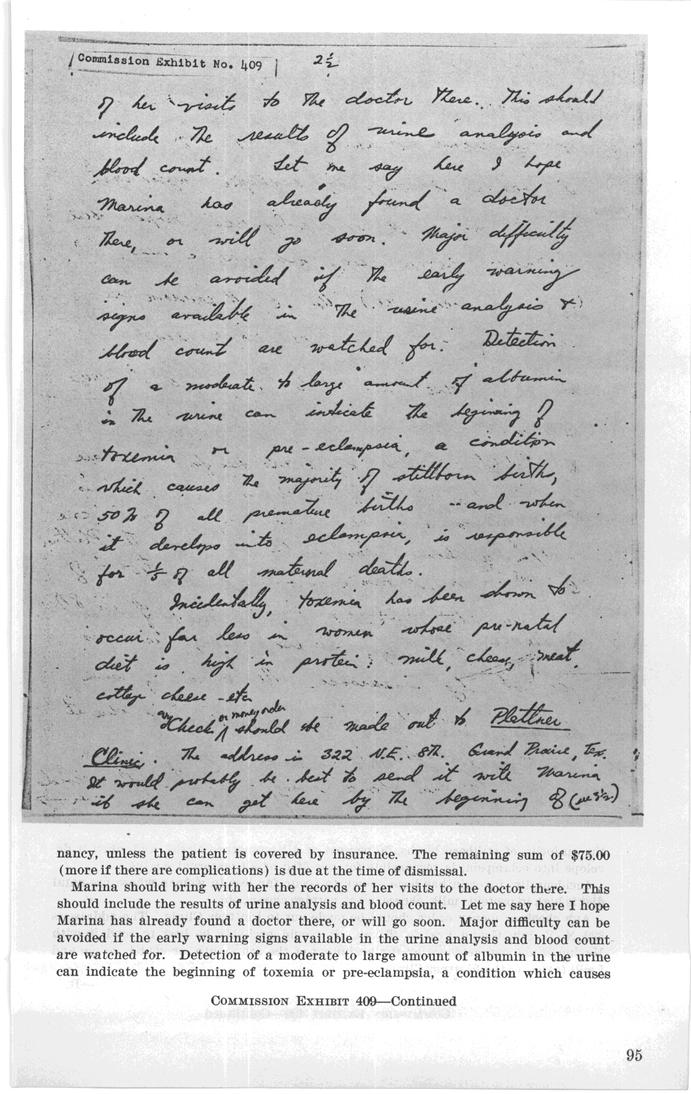 Commission Exhibit No. 409
2½
of her visits to the doctor there. This should
include the results of urine analysis and
blood count. Let me say here I hope
Marina has already found a doctor
there, or will go soon. Major difficulty
can be avoided if the early warning
signs available in the urine analysis +
blood count are watched for. Detection
of a moderate to large amount of albumin
in the urine can indicate the beginning of
toxemia or pre-eclampsia, a condition
which causes the majority of stillborn births,
50% of all premature births -- and when
it develops into eclampsia, is responsible
for ⅓ of all maternal deaths.
Incidentally, toxemia has been shown to
occur far less in women whose pre-natal
diet is high in protein: milk, cheese, meat,
cottage cheese - etc.
or money order
Check should be made out to Plattner
Clinic. The address is 322 N.E. 8th. Grand Prairie, Tex.
It would probably be best to send it with Marina
if she can get here by the beginning of
nancy, unless the patient is covered by insurance. The remaining sum of $75.00
(more if there are complications) is due at the time of dismissal.
Marina should bring with her the records of her visits to the doctor there. This
should include the results of urine analysis and blood count. Let me say here I hope
Marina has already found a doctor there, or will go soon. Major difficulty can be
avoided if the early warning signs available in the urine analysis and blood count
are watched for. Detection of a moderate to large amount of albumin in the urine
can indicate the beginning of toxemia or pre-eclampsia, a condition which causes
COMMISSION EXHIBIT 409—Continued
95